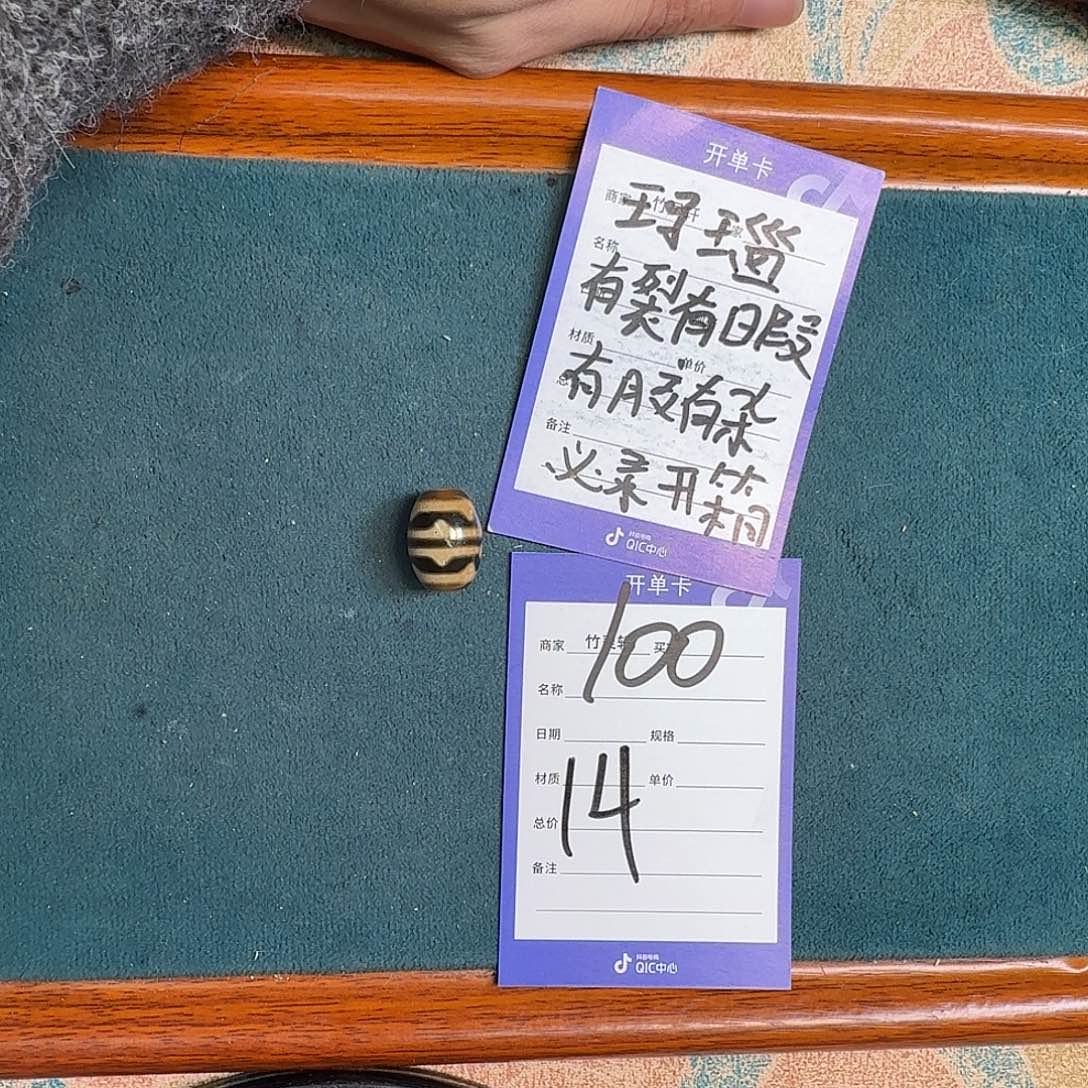 开单卡
商家 竹 轩 家
玛瑙
名称
有裂有暇
材质 单价
总
有 有杂
备注
必录开箱
抖音电商
QIC中心
开单卡
100
商家 竹 轩 买
名称
日期 规格
14
材质 单价
总价
备注
抖音电商
QIC中心